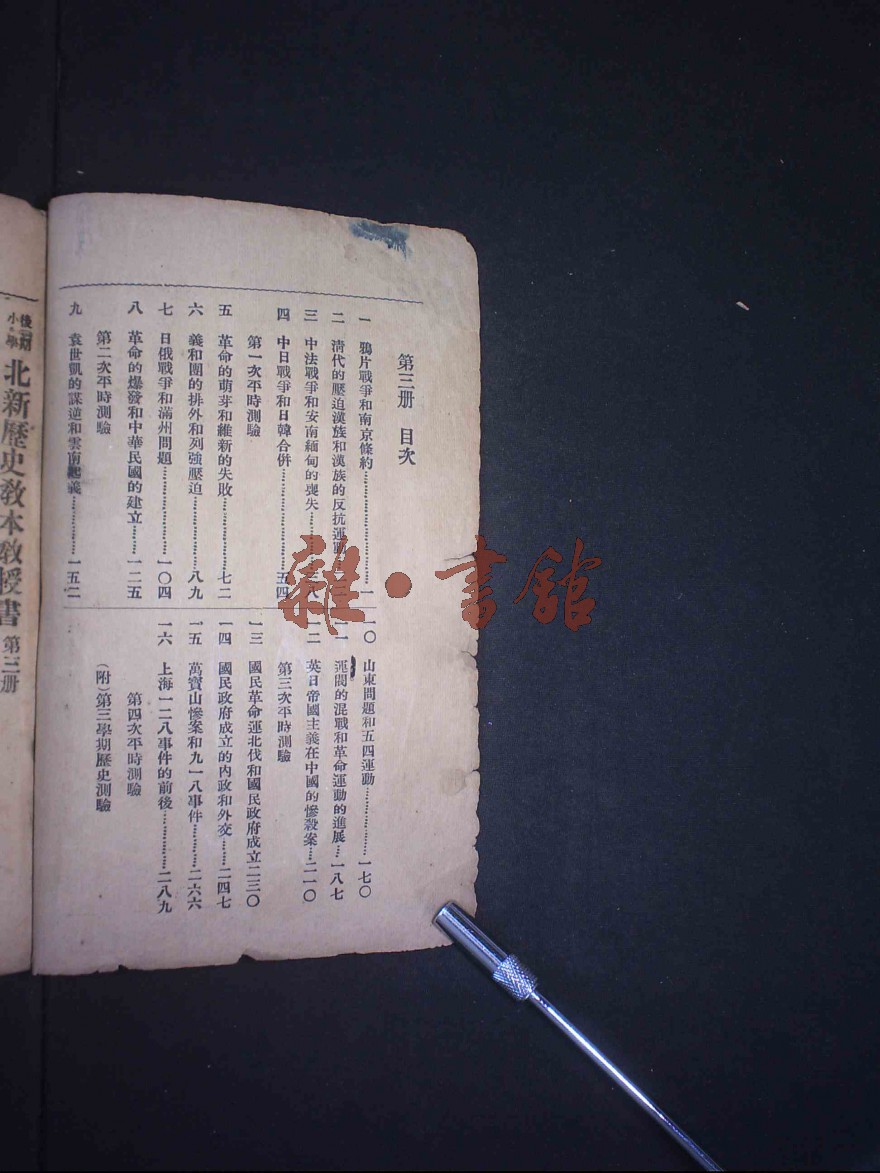 第三册 目次
一 鴉片戰爭和南京條約……一
二 清代的壓迫漢族和漢族的反抗運動
三 中法戰爭和安南緬甸的喪失……三八
四 中日戰爭和日韓合併……五四
第一次平時測驗
五 革命的萌芽和維新的失敗……七二
六 義和團的排外和列強壓迫……八九
七 日俄戰爭和滿州問題……一〇四
八 革命的爆發和中華民國的建立……一二五
第二次平時測驗
九 袁世凱的謀逆和雲南起義……一五二
一〇 山東問題和五四運動……一七〇
一一 軍閥的混戰和革命運動的進展…一八七
一二 英日帝國主義在中國的慘殺案…二一〇
第三次平時測驗
一三 國民革命運北伐和國民政府成立二三〇
一四 國民政府成立的內政和外交……二四七
一五 萬寶山慘案和九一八事件……二六六
一六 上海一二八事件的前後……二八九
第四次平時測驗
(附)第三學期歷史測驗
小學後期 北新歷史教本教授書 第三册
雜·書館